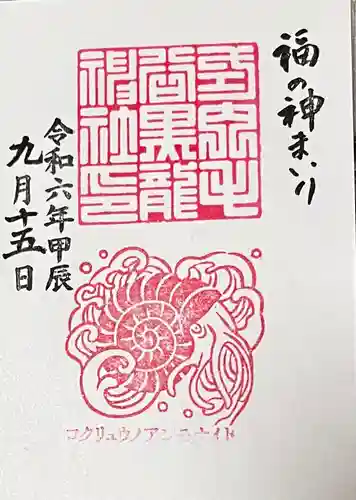 福の神まいり
令和六年甲辰
九月十五日
コクリュウノアンモナイト